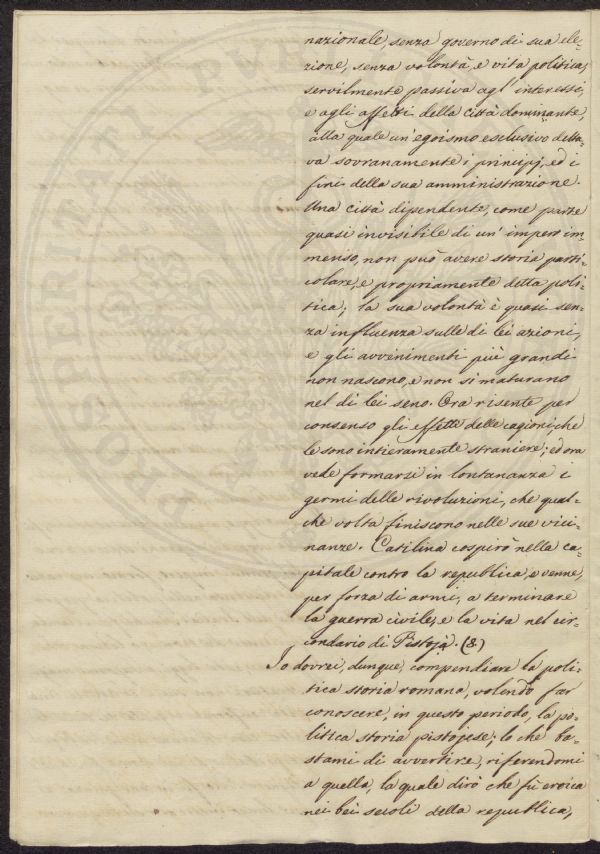 nazionale, senza governo di sua ele-
zione, senza volontà, e vita politica,
servilmente passiva agl' interessi,
e agli affetti della città dominante,
alla quale un' egoismo esclusivo detta-
va sovranamente i principj, ed i
fini della sua amministrazione.
Una città dipendente, come parte
quasi invisibile di un' impero im-
menso, non può avere storia parti-
colare, e propriamente detta poli-
tica; la sua volontà è quasi sen-
za influenza sulle di lei azioni,
e gli avvenimenti più grandi
non nascono, e non si maturano
nel di lei seno. Ora risente per
consenso gli effetti delle cagioni, che
le sono intieramente straniere; ed ora
vede formarsi in lontananza i
germi delle rivoluzioni, che qual-
che volta finiscono nelle sue vici-
nanze. Catilina cospirò nella ca-
pitale contro la republica, e venne,
per forza di armi, a terminare
la guerra civile, e la vita nel cir-
condario di Pistoja. (8)
Io dovrei, dunque, compendiare la poli-
tica storia romana, volendo far
conoscere, in questo periodo, la po-
litica storia pistojese; lo che ba-
stami di avvertire, riferendomi
a quella, la quale dirò che fù eroica
nei bei secoli della republica,
PROSPERITATI PVB